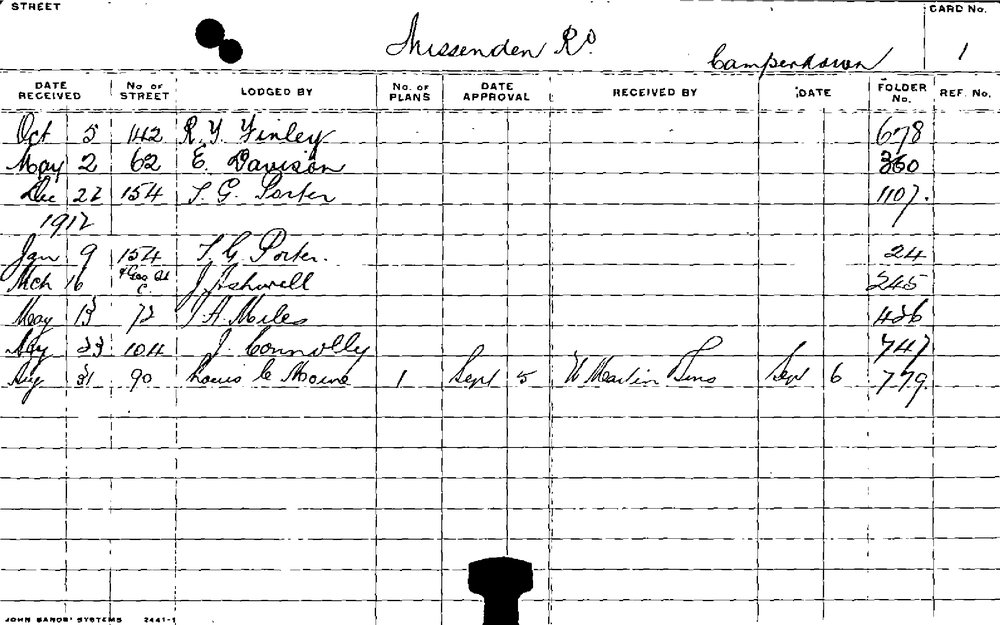 STREET CARD No.
Missenden Rd. Camperdown 1
DATE RECEIVED No OF STREET LODGED BY No. OF PLANS DATE APPROVAL RECEIVED BY DATE FOLDER No. REF. No.
Oct 5 142 R. Y. Finley 678
May 2 62 E. Davison 360
Dec 22 154 T. G. Porter 1107.
1912
Jan 9 154 T. G. Porter. 24
Mch 16 J Ashwell 245
May 13 72 J A Miles 426
23 104 J. Connolly 747
Aug 31 90 Louis Le Moine 1 Sept 5 W Martin Sept 6 779.
JOHN SANDS' SYSTEMS 2441-1